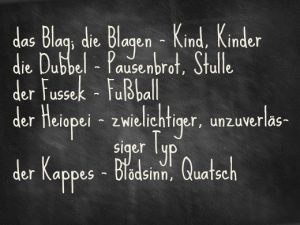 das Blag; die Blagen - Kind, Kinder
die Dubbel - Pausenbrot, Stulle
der Fussek - Fußball
der Heiopei - zwielichtiger, unzuverläs-
siger Typ
der Kappes - Blödsinn, Quatsch